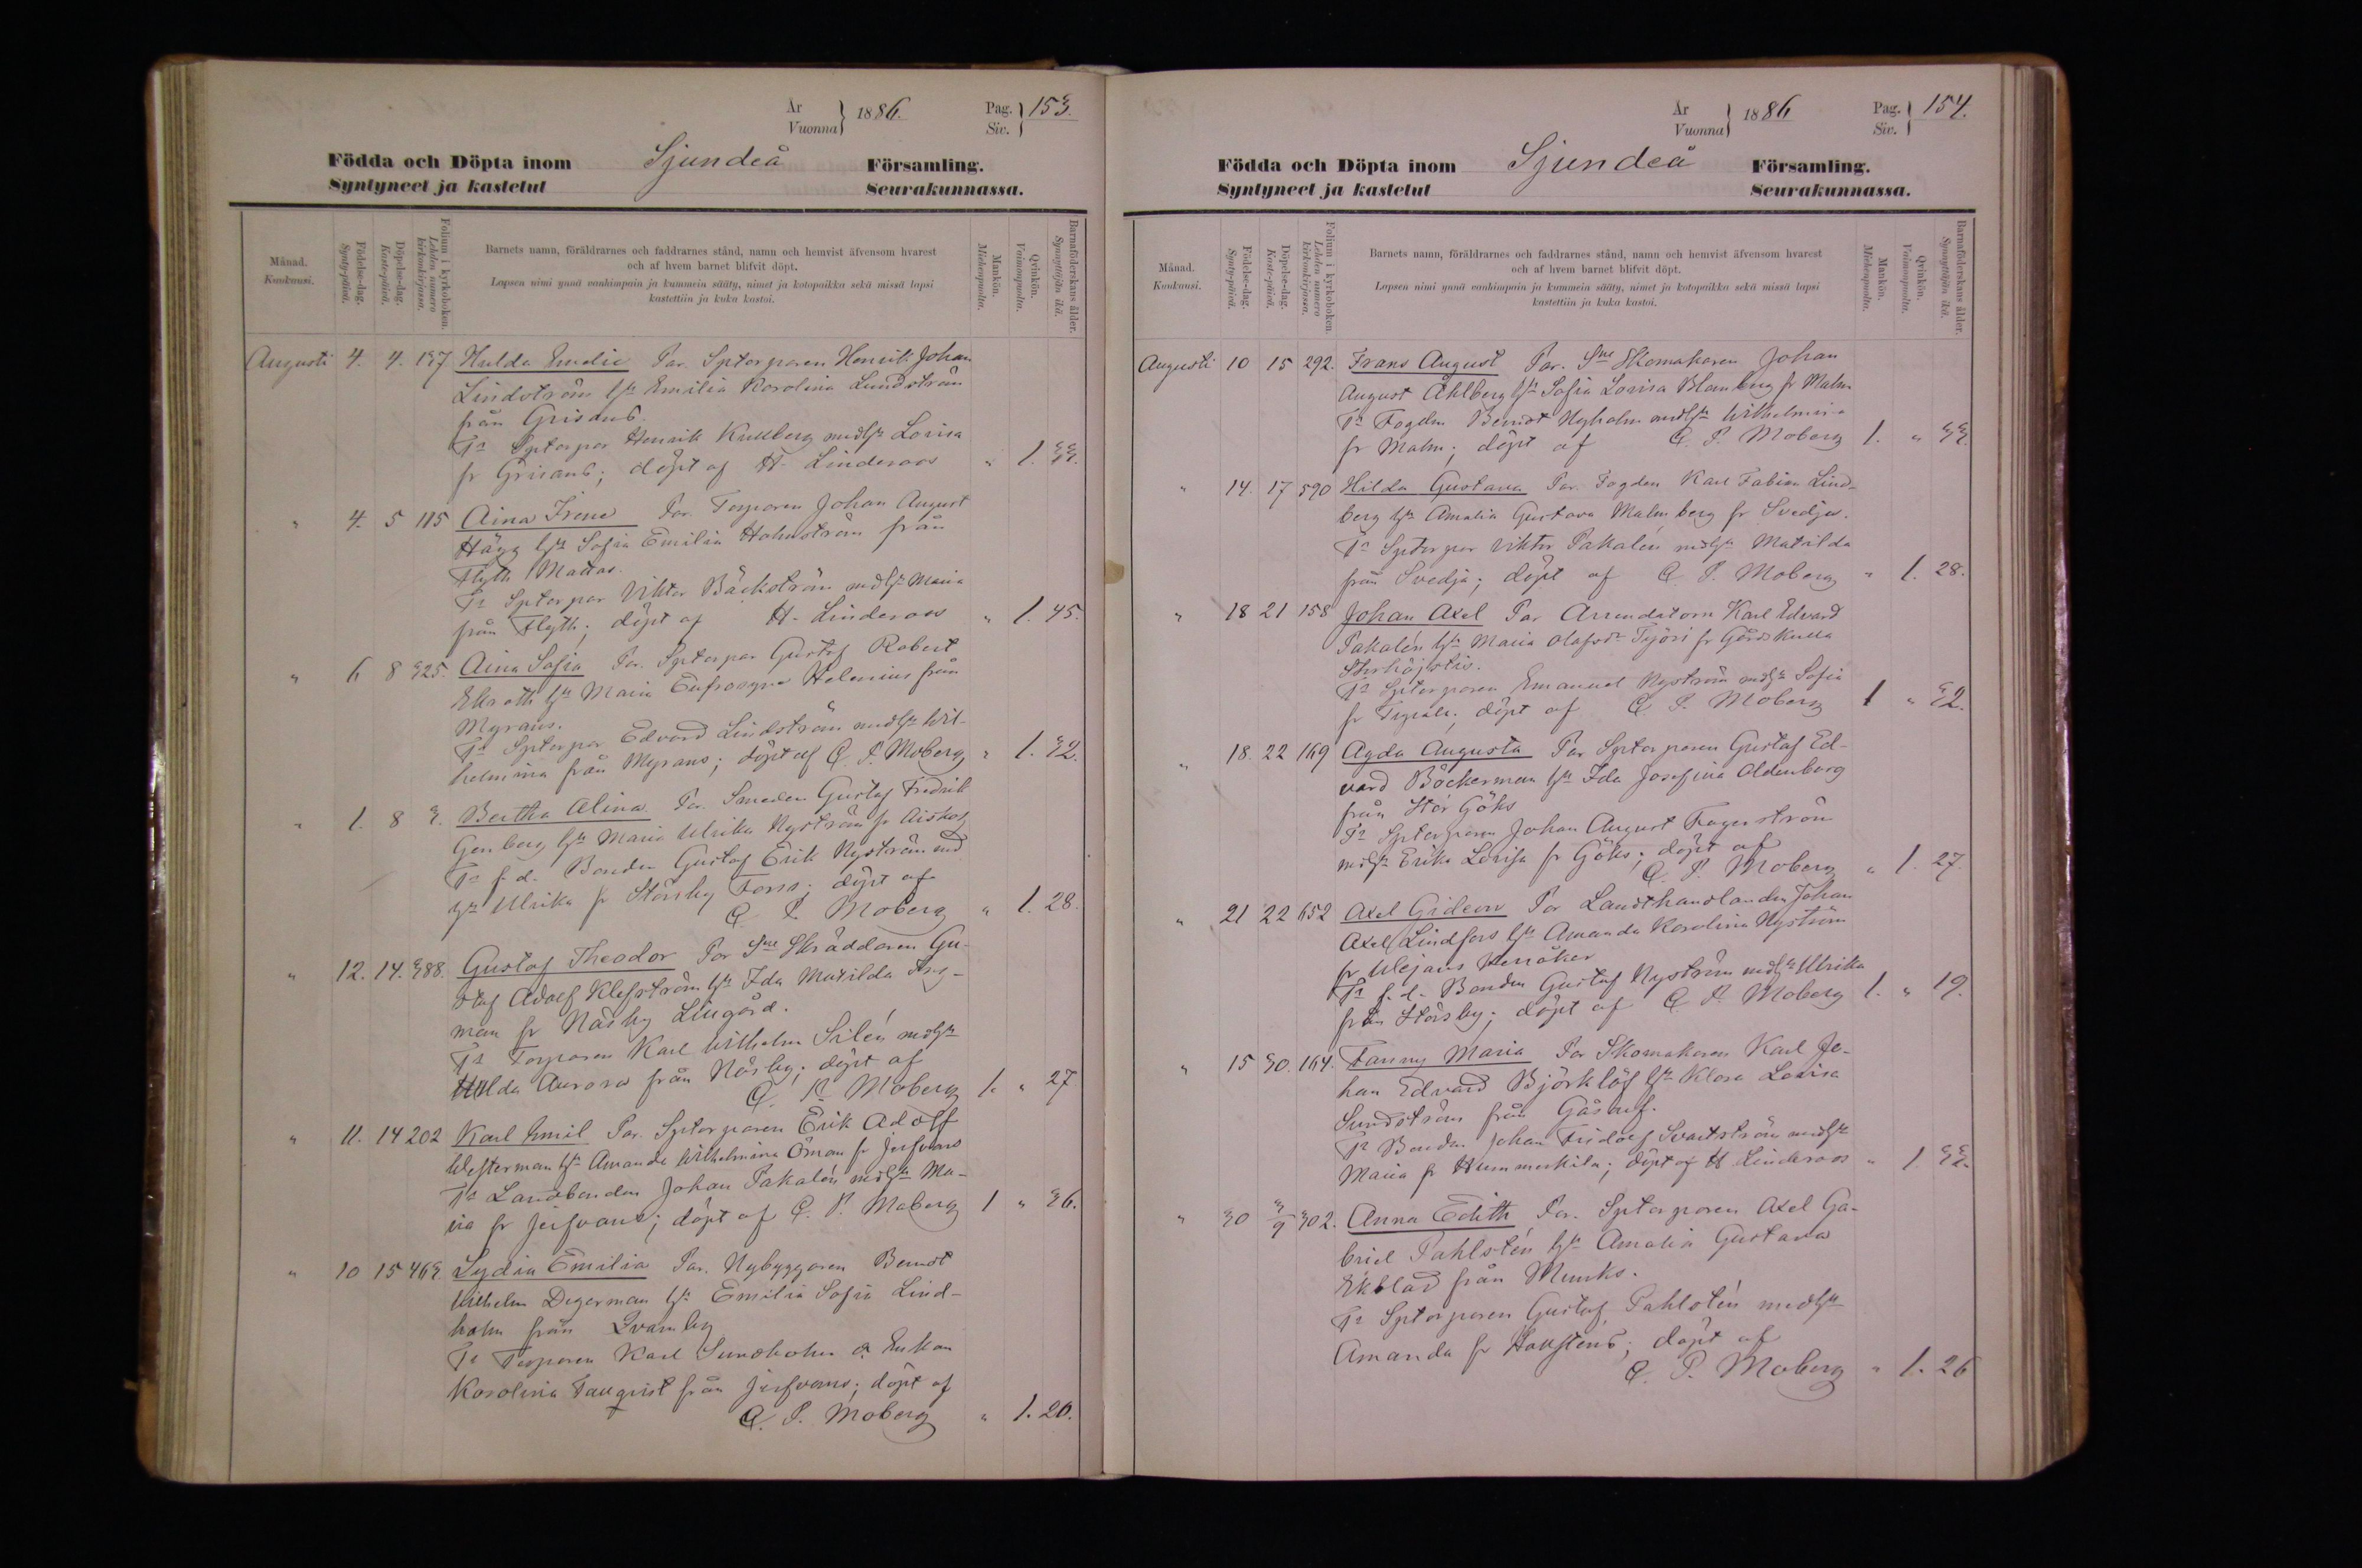 År
Vuonna } 1886. Pag. Siv. } 153.
Födda och Döpta inom Sjundeå Församling.
Syntyneet ja kastetut Seurakunnassa.
Månad. Kuukausi.
Födelse-dag. Synty-päivä.
Döpelse-dag. Kaste-päivä.
Folium i kyrkoboken. Lehden numero kirkonkirjassa.
Barnets namn, föräldrarnes och faddrarnes stånd, namn och hemvist äfvensom hvarest
och af hvem barnet blifvit döpt.
Lapsen nimi ynnä vanhimpain ja kummein sääty, nimet ja kotopaikka sekä missä lapsi
kastettiin ja kuka kastoi.
Mankön. Miehenpuolta.
Qvinkön. Vaimonpuolta.
Barnaföderskans ålder. Synnyttäjän ikä.
Augusti 4. 4. 137 Hulda Emelie Par. Sptorparen Henrik Johan
Lindström hst Emilia Karolina Lundström
från Grisans.
Ts Sptorpar Henrik Kullberg mdhst Lovisa
fr Grisans; döpt af H. Linderoos " 1. 33.
" 4. 5 115 Aina Irene Par. Torparen Johan August
Hägg hst Sofia Emilia Holmström från
Flyth Mattas.
Ts Sptorpar Viktor Bäckström mdhst Maria
från Flyth; döpt af H. Linderoos " 1. 45.
" 6 8 325. Aina Sofia Par. Sptorpar Gustaf Robert
Ekroth hst Maria Eufrosyne Helenius från
Myrans.
Ts Sptorpar Edvard Lindström mdhst Wil-
helmina från Myrans; döpt af C. P. Moberg " 1. 32.
" 1. 8 3. Bertha Alina Par. Smeden Gustaf Fredrik
Genberg hst Maria Ulrika Nyström fr Aiskos
Ts f. d. Bonden Gustaf Erik Nyström med
hst Ulrika fr Störsby Forss; döpt af
C. P. Moberg " 1. 28.
" 12. 14. 388. Gustaf Theodor Par Sne Skräddaren Gu-
staf Adolf Klefström hst Ida Matilda
man fr Näsby Lillgård.
Ts Torparen Karl Wilhelm Silén mdhst
Hulda Aurora från Näsby; döpt af
C. P. Moberg 1. " 27
" 11. 14 202 Karl Emil Par. Sptorparen Erik Adolf
Westerman hst Amanda Wilhelmina Öman fr Jerfvans
Ts Landbonden Johan Pakalén mdhst Ma-
ria fr Jerfvans; döpt af C. P. Moberg 1 " 36.
" 10 15 463 Lydia Emilia Par. Nybyggaren Berndt
Wilhelm Degerman hst Emilia Sofia Lind-
holm från Svarnby
Ts Torparen Karl Sundholm o. Enkan
Karolina Tauqvist från Jerfvans; döpt af
C. P. Moberg " 1. 20.
År
Vuonna } 1886 Pag. Siv. } 154.
Födda och Döpta inom Sjundeå Församling.
Syntyneet ja kastetut Seurakunnassa.
Månad. Kuukausi.
Födelse-dag. Synty-päivä.
Döpelse-dag. Kaste-päivä.
Folium i kyrkoboken. Lehden numero kirkonkirjassa.
Barnets namn, föräldrarnes och faddrarnes stånd, namn och hemvist äfvensom hvarest
och af hvem barnet blifvit döpt.
Lapsen nimi ynnä vanhimpain ja kummein sääty, nimet ja kotopaikka sekä missä lapsi
kastettiin ja kuka kastoi.
Mankön. Miehenpuolta.
Qvinkön. Vaimonpuolta.
Barnaföderskans ålder. Synnyttäjän ikä.
Augusti 10 15 292. Frans August Par. Sne Skomakaren Johan
August Åhlberg hst Sofia Lovisa Blomberg fr Malm
Ts Fogden Berndt Nyholm mdhst Wilhelmina
fr Malm; döpt af C. P. Moberg 1. " 33.
" 14. 17 590 Hilda Gustava Par. Fogden Karl Fabian Lind-
berg hst Amalia Gustava Malmberg fr Svedja.
Ts Sptorpar Viktor Pakalén mdhst Matilda
från Svedja; döpt af C. P. Moberg " 1. 28.
" 18 21 158 Johan Axel Par Arrendatorn Karl Edvard
Pakalén hst Maria Olafsdr Tejöri fr Gårdskulla
Ts Sptorparen Emanuel Nyström mdhst Sofia
fr döpt af C. P. Moberg 1 " 32.
" 18. 22 169 Agda Augusta Par Sptorparen Gustaf Ed-
vard Böckerman hst Ida Josefina Oldenborg
från Stor Göks
Ts Sptorparen Johan August Fagerström
mdhst Erika Lovisa fr Göks; döpt af
C. P. Moberg " 1. 27.
" 21 22 652 Axel Gideon Par Landthandlanden Johan
Axel Lindfors hst Amanda Karolina Nyström
fr
Ts f. d. Bonden Gustaf Nyström mdhst Ulrika
från Störsby; döpt af C. P. Moberg 1. " 19.
" 15 30. 164. Fanny Maria Par Skomakaren Karl Jo-
han Edvard Björklöf hst Klara Lovisa
Sundström från Gåsarf.
Ts Bonden Johan Fridolf Svartström mdhst
Maria fr Hummerkila; döpt af H Linderoos " 1 33.
" 30 3/9 302. Anna Edith Par. Sptorparen Axel Ga-
briel Pahlstén hst Amalia Gustava
Ekblad från Munks.
Ts Sptorparen Gustaf Pahlstén mdhst
Amanda fr döpt af
C. P. Moberg " 1. 26